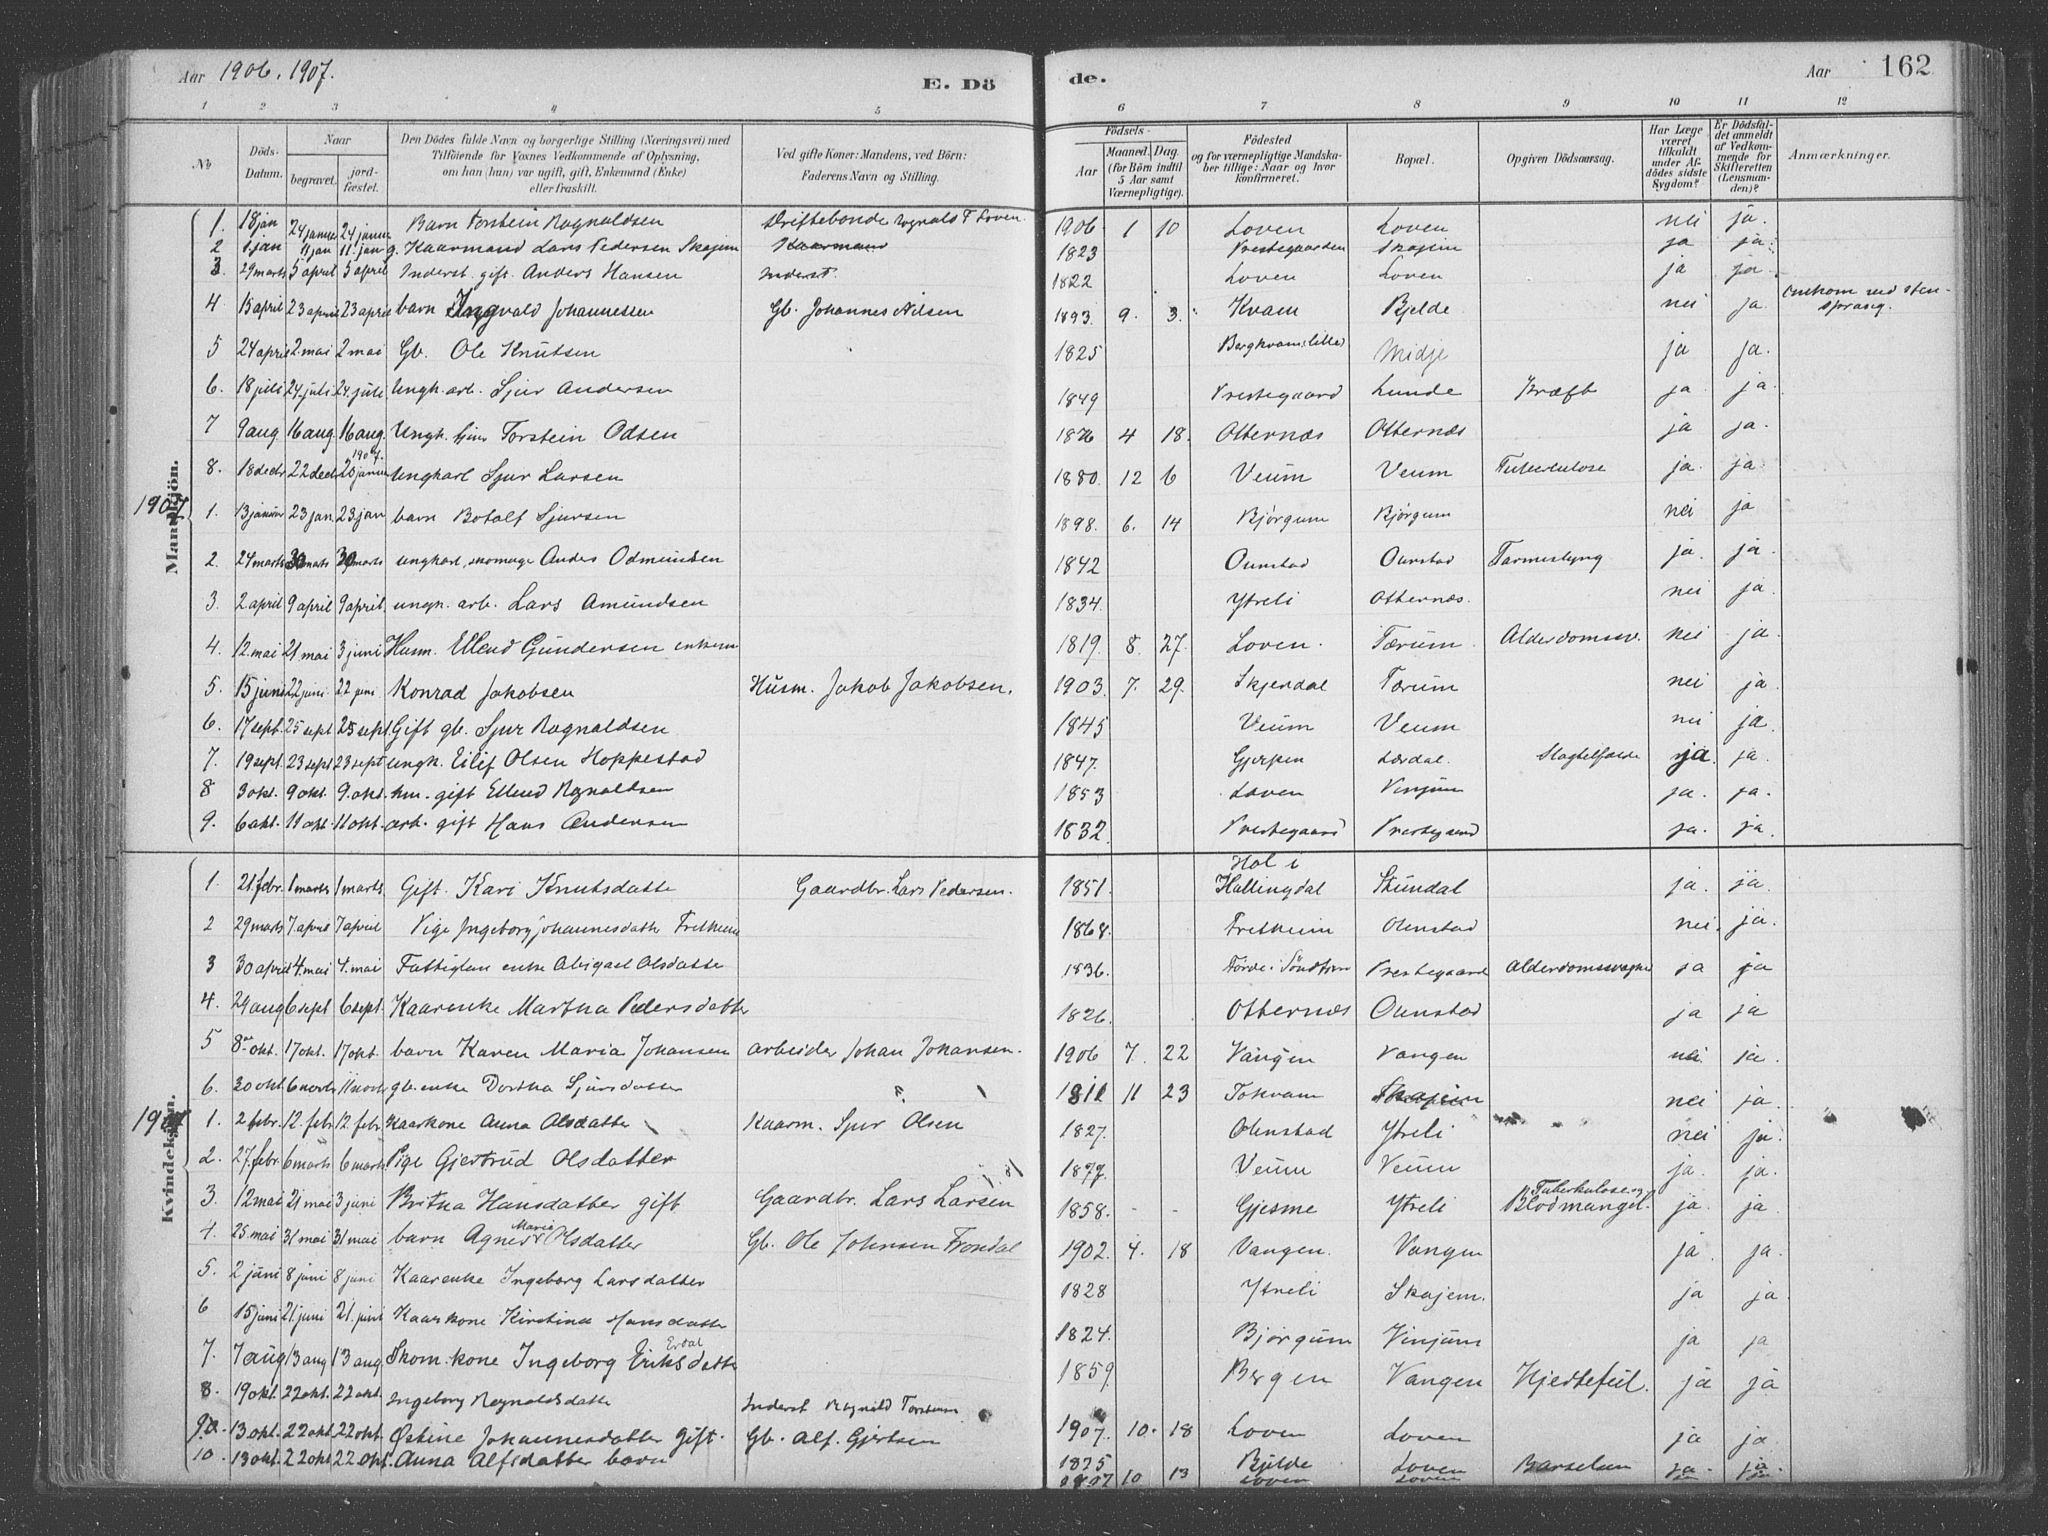 Aar 1906. 1907.
E. Dö
de.
Aar
162
1 2 3 4 5 6 7 8 9 10 11 12
No
Döds-Datum.
Naar
begravet.
jord-fæstet.
Den Dödes fulde Navn og borgerlige Stilling (Næringsvei) med
Tilföiende for Voxnes Vedkommende af Oplysning,
om han (hun) var ugift, gift, Enkemand (Enke)
eller fraskilt.
Ved gifte Koner: Mandens, ved Börn:
Faderens Navn og Stilling.
Födsels-
Aar
Maaned. Dag.
(for Börn indtil
5 Aar samt
Værnepligtige).
Födested
og for værnepligtige Mandska-
ber tillige: Naar og hvor
konfirmeret.
Bopæl.
Opgiven Dödsaarsag.
Har Læge
været
tilkaldt
under Af-
dødes sidste
Sygdom?
Er Dödsfal-
det anmeldt
af Vedkom-
mende for
Skifteretten
(Lensman-
den)?
Anmærkninger.
Mandkjön.
1. 18 jan 24 januar 24 januar Barn Torstein Ragnaldsen Driftebonde Rognald T Loven. 1906 1 10 Loven Loven nei ja.
2 1 jan 11 jan 11. jan g. Kaarmand Lars Pedersen Skajem Kaarmand 1823 Prestegaarden Skajem ja ja.
3. 29 marts 5 april 5 april Inderst. gift. Anders Hansen Inderst. 1822 Loven Loven ja ja.
4 15 april 23 april 23 april barn Ingvald Johannessen Gb. Johannes Nilsen 1893. 9. 3. Kvam Bjelde nei ja Omkom ved sten-
sprang.
5 24 april 2. mai 2 mai Gb. Ole Knutsen 1825 Bergkvam Midje ja ja.
6. 18 juli 24. juli 24. juli Ungk. arb. Sjur Andersen 1849 Prestegaard Lunde Kræft ja. ja.
7 9 aug 16 aug 16 aug. Ungk. Torstein Odsen 1876 4 18. Otternæs Otternæs ja ja.
8. 18 decbr 22 decb 1907. 20 januar Ungkarl Sjur Larsen 1880. 12 6 Veum Veum Tuberculose ja. ja.
1907
1. 13 januar 23 jan. 23. jan barn Botolf Sjursen 1898. 6. 14 Bjørgum Bjørgum nei ja
2. 24 marts 30 marts 30 marts ungkarl, skomager Anders Odmundsen 1842 Ounstad Ounstad Tarmeslyng ja. ja.
3. 2 april 9 april 9 april. ungk. arb. Lars Amundsen 1834. Ytreli Otternæs. nei ja.
4. 12 mai 21 mai 3 juni Husm. Ellend Gundersen enkem 1819. 8. 27. Loven. Tærum Alderdomssv. nei ja.
5. 15 juni 22 juni 22 juni Konrad Jakobsen Husm. Jakob Jakobsen. 1903. 7. 29. Skjerdal Tærum nei ja.
6. 17 sept. 25 sept 25 sept. Gift gb. Sjur Ragnaldsen 1845 Veum Veum nei ja.
7. 19 sept. 23 sept 23 sept ungk. Eilif Olsen Hoppestad 1847. Gjerpen Lærdal. Slagtilfælde ja. ja.
8 3 okt. 9 okt. 9. okt. hm. gift Ellend Ragnaldsen 1853 Loven Vinjum ja. ja.
9. 6 okt. 11 okt. 11 okt. arb. gift Hans Andersen 1832. Prestegaard Prestegaard ja. ja.
Kvindekjön.
1. 21. febr. 1 marts 1 marts. Gift. Kari Knutsdatter Gaardbr. Lars Pedersen. 1851. Hol i
Hallingdal Stundal ja. ja.
2 29 marts 7. april 7 april Pige Ingeborg Johannesdatter Fretheim 1868. Fretheim Ounstad nei. ja.
3 30 april 4. mai 4. mai Fattiglem enke Abigael Olsdatter 1836. Førde i Søndfjord Prestegaard Alderdomssvaghed ja ja
4. 29 aug 6 sept 6 sept. Kaarenke Martha Pedersdatter 1826. Otternæs Ounstad ja ja
5 8 okt. 17 okt. 17 okt. barn Karen Maria Johansen arbeider Johan Johansen. 1906 7. 22 Vangen Vangen nei ja.
6. 30 okt. 6 novbr 11 novbr gb. enke Dortha Sjursdatter 1811 11 23 Tokvam Skajem nei ja.
1907
1. 2 febr. 12. febr 12 febr Kaarkone Anna Olsdatter Kaarm. Sjur Olsen 1827. Ounstad Ytreli nei ja.
2. 27. febr. 6 marts 6 marts Pige Gjertrud Olsdatter 1877. Veum Veum ja. ja.
3. 12 mai 21 mai 3 juni Britha Hansdatter gift Gaardbr. Lars Larsen 1858. - - Gjesme Ytreli Tuberkulose og
Blodmangel. ja. ja.
4. 25. mai 31 mai 31 mai barn Agnes Marie Olsdatter Gb. Ole Johnsen Frondal 1902. 4. 18 Vangen. Vangen ja. ja.
5. 2 juni 8 juni 8 juni Kaarenke Ingeborg Larsdatter 1828 Ytreli Skajem. ja ja.
6 15 juni 21. juni 21. juni Kaarkone Kirstina Hansdatter 1824. Bjørgum Vinjum ja ja
7. 7 aug 13 aug 13 aug. Skom. kone Ingeborg Eriksdatter Erdal 1859 Bergen Vangen Hjertefeil. ja ja
8. 19 okt. 22 okt. 22 okt. Ingeborg Ragnaldsdatter Inderst Ragnald Torsteinsen 1907. 10. 18 Loven Loven ja ja
9. 13 okt. 22 okt 22 okt. Østine Johannesdatter Gift. Gb. Alf. Gjertsen 1875 Bjelde Loven Barselsen ja. ja
10. 13 okt. 22 okt 22 okt. Anna Alfsdatter barn 1907 10 13 Loven Loven